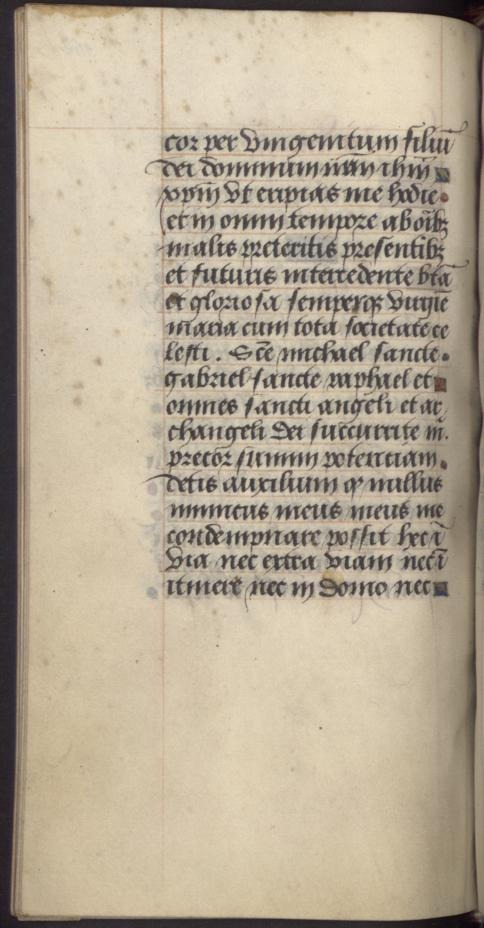 cor per Vnigenitum filiū
dei dominum nr̄m ihm̄
xpm̄ Vt eripias me hodie
et in omni tempore ab oībꝫ
malis preteritis presentibꝫ
et futuris intercedente btā
et gloriosa semperqꝫ Virgīe
maria cum tota societate ce
lesti . Scē michael sancte
gabriel sancte raphael et
omnes sancti angeli et ar
changeli dei succurrite m̄.
precōr summ potenciam
detis auxilium qꝫ nullus
inimicus meus meus me
condempnare possit hec ī
Via nec extra viam nec ī
itinere nec in domo nec